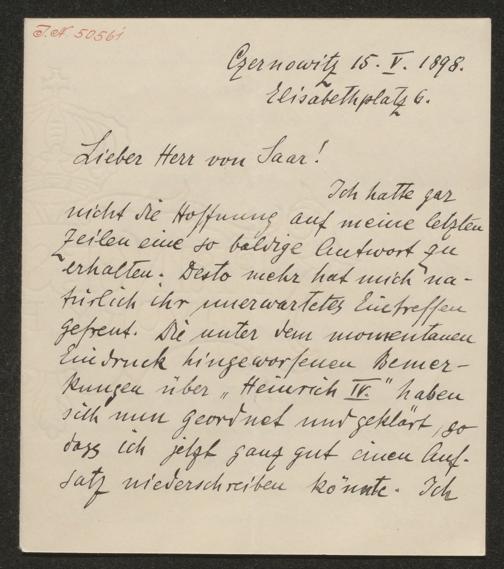 I.N. 50561
Czernowitz 15. V. 1898.
Elisabethplatz 6.
Lieber Herr von Saar!
Ich hatte gar
nicht die Hoffnung auf meine letzten
Zeilen eine so baldige Antwort zu
erhalten. Desto mehr hat mich na-
türlich ihr unerwartetes Eintreffen
gefreut. Die unter dem momentanen
Eindruck hingeworfenen Bemer-
kungen über „Heinrich IV." haben
sich nun geordnet und geklärt, so
dass ich jetzt ganz gut einen Auf-
satz niederschreiben könnte. Ich